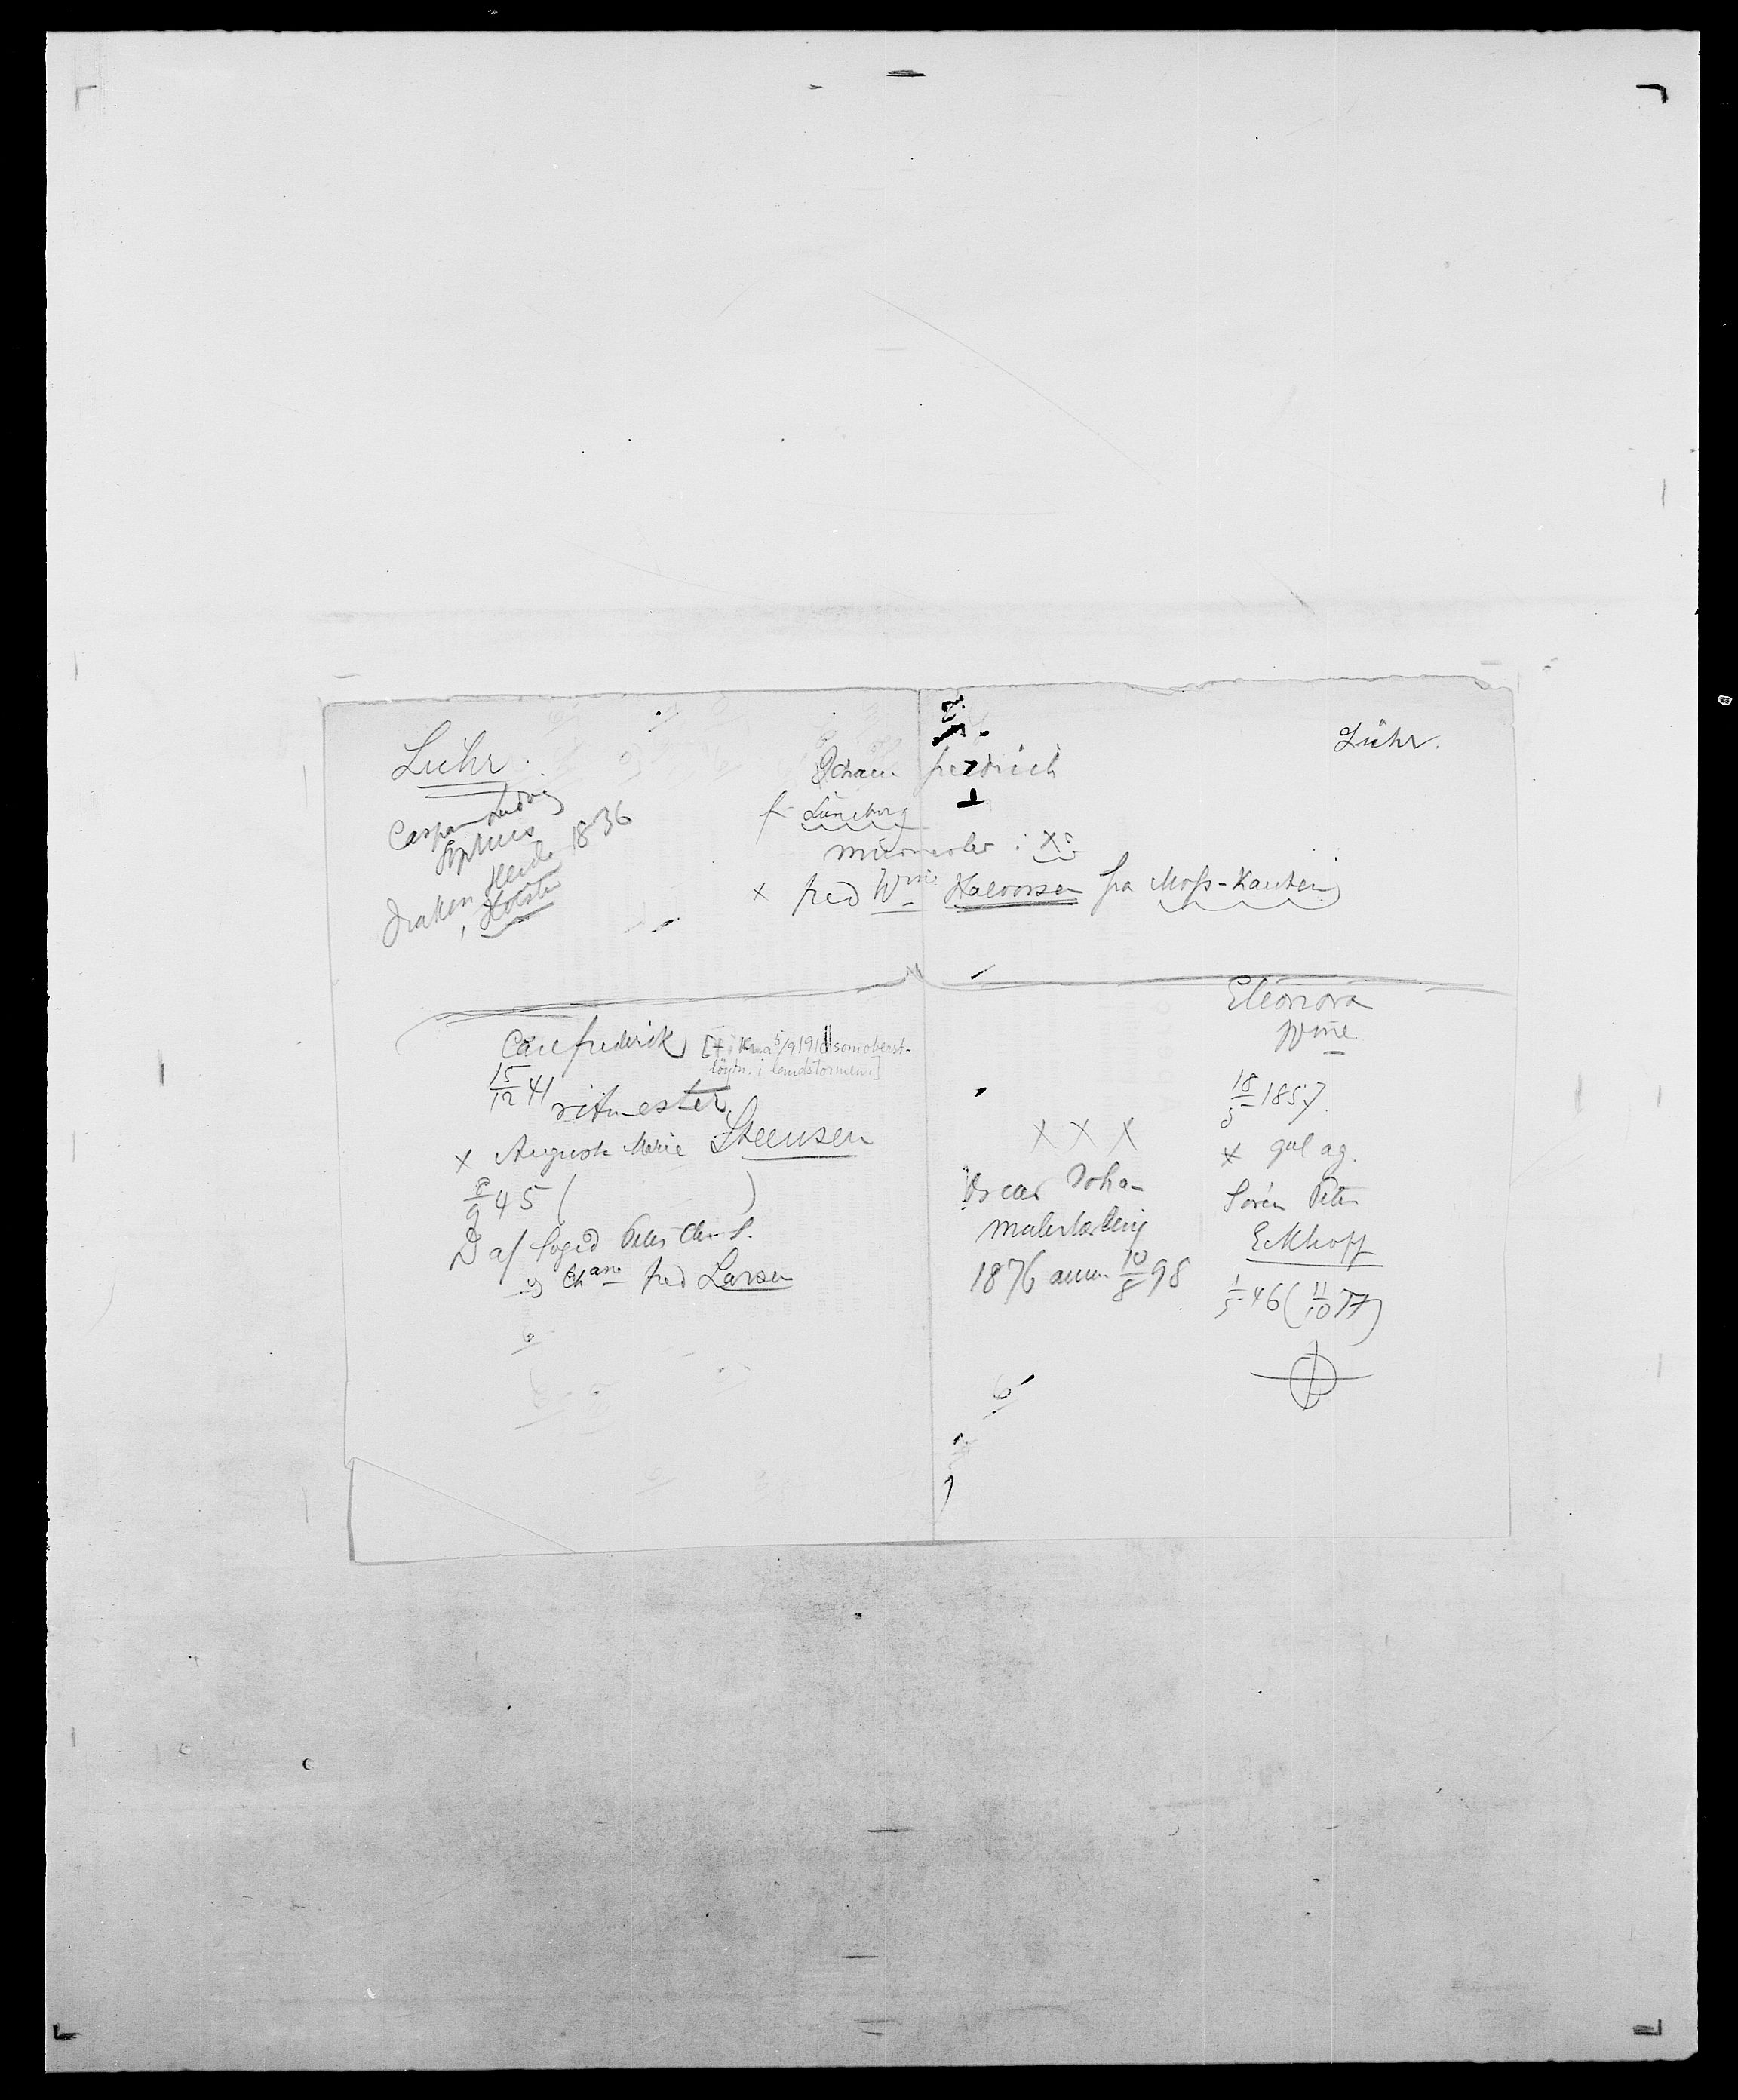 Lühr.
Lühr.
Caspar Ludvig
1836
Heide
Holsten
Johan fredrich
f Lüneburg
murmester i Xa
x fred Wme Halvorsen fra Moss-Kanten
Carl fredrik [† i Krania 5/9 1918 som oberst-
löytn. i landstormen.]
15/12 41
ritmester
x Augusta Marie Steensen
8/9 45 ( )
D af foged Peter Chr S.
og Chane fred Larsen
X X X
Oscar Joha-
malerlærling
1876 anm 10/8 98
Eleonora
Wme
18/5 1857.
x gul ag.
Sören Peter
Eckhoff
1/5 46 (11/10 77)